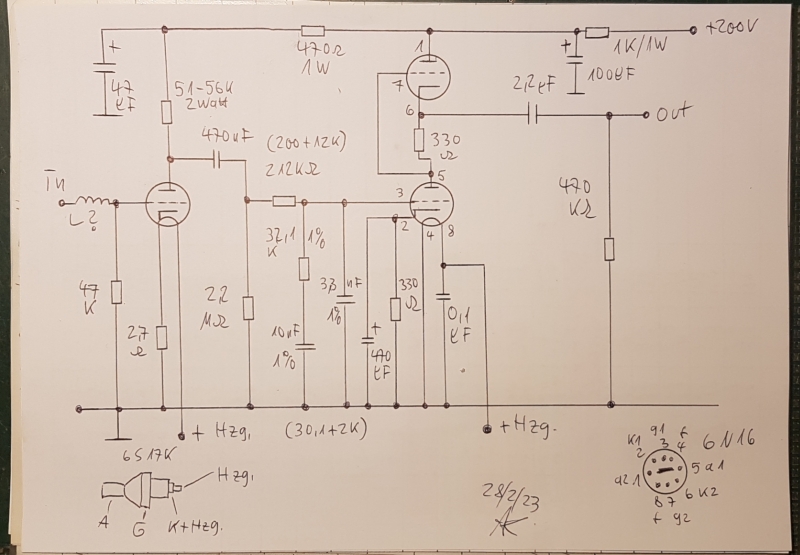 +
470Ω
1W
1
+
1K/1W
+200V
47
µF
51-56K
2Watt
7
100µF
2,2µF
6
Out
470nF
(200+12K)
212KΩ
330
Ω
5
In
L?
3
470
KΩ
2
4
8
32,1
K
1%
47
K
3,3 nF
1%
330
Ω
2,2
MΩ
2,7
Ω
10nF
1%
+
470
µF
0,1
µF
+ Hzg.
(30,1+2K)
+Hzg.
6S17K
Hzg.
A
G
K+Hzg.
28/2/23
g1
K1
2
3
f
4
6N16
a2 1
5 a1
6 K2
8 7
f g2